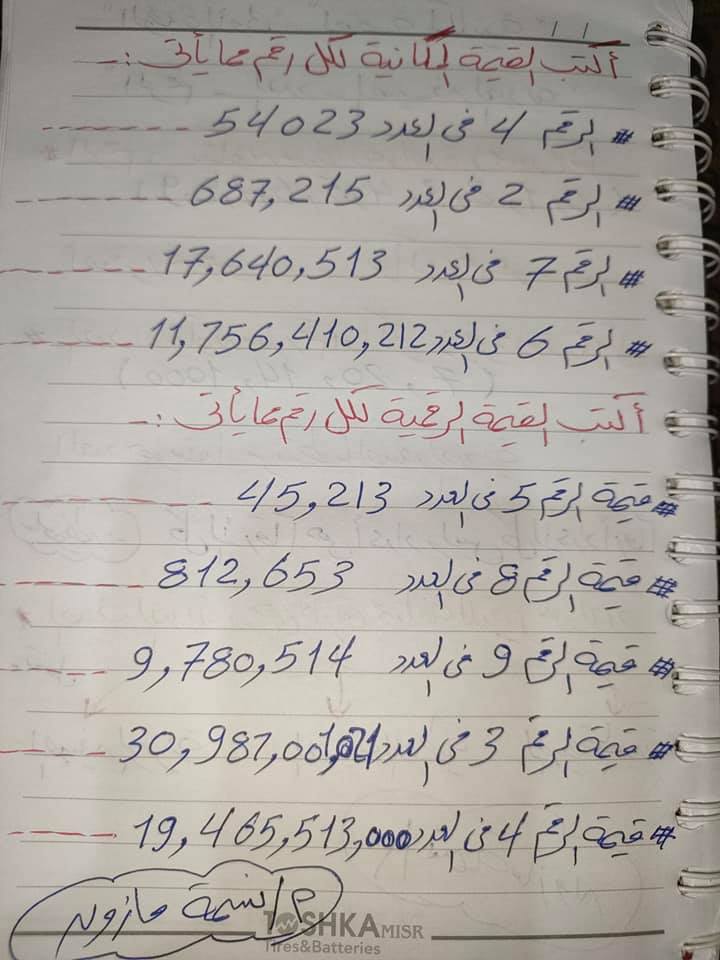 أكتب القيمة المكانية لكل رقم مما يأتى :-
# الرقم 4 فى العدد 54023 -------
# الرقم 2 فى العدد 687,215 -------
# الرقم 7 فى العدد 17,640,513 -------
# الرقم 6 فى العدد 11,756,410,212 -------
أكتب القيمة الرقمية لكل رقم مما يأتى :-
# قيمة الرقم 5 فى العدد 45,213 -------
# قيمة الرقم 8 فى العدد 812,653 -------
# قيمة الرقم 9 فى العدد 9,780,514 -------
# قيمة الرقم 3 فى العدد 30,987,001,021 -----
# قيمة الرقم 4 فى العدد 19,465,513,000 -----
م/ نسمة مازونه
TOSHKA MISR
Tires&Batteries